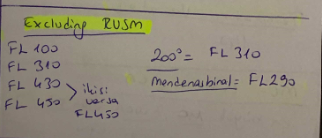 Excluding RUSM
FL 100
FL 310
FL 430
FL 450
ikisi
varsa
FL450
200° = FL 310
Mandenasbinal = FL290